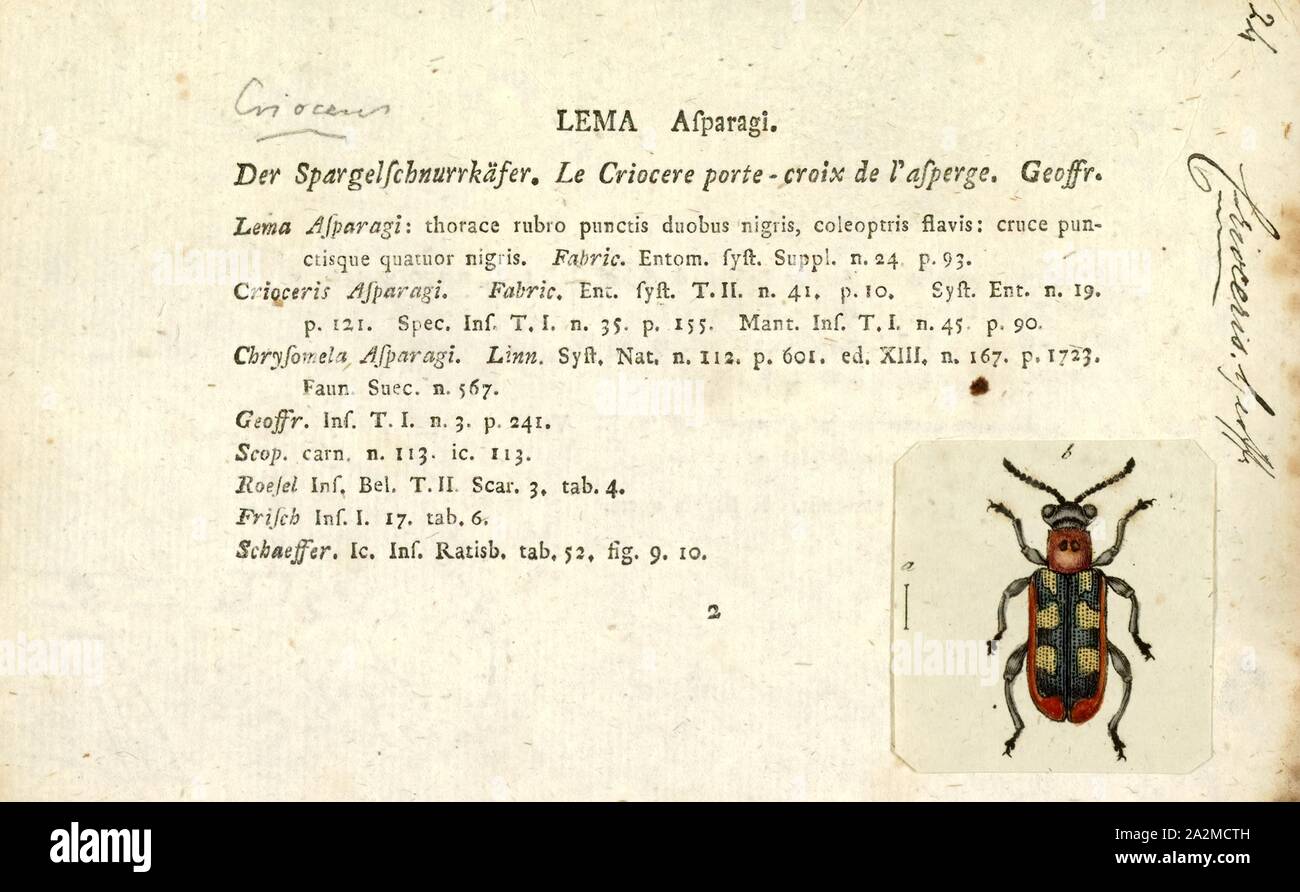 Crioceris
24
LEMA Aſparagi.
Der Spargelſchnurrkäfer. Le Criocere porte-croix de l'aſperge. Geoffr.
Lema Aſparagi: thorace rubro punctis duobus nigris, coleoptris flavis: cruce pun-
ctisque quatuor nigris. Fabric. Entom. ſyſt. Suppl. n. 24. p. 93.
Crioceris Aſparagi. Fabric. Ent. ſyſt. T. II. n. 41. p. 10. Syſt. Ent. n. 19.
p. 121. Spec. Inſ. T. I. n. 35. p. 155. Mant. Inſ. T. I. n. 45. p. 90.
Chryſomela Aſparagi. Linn. Syſt. Nat. n. 112. p. 601. ed. XIII. n. 167. p. 1723.
Faun. Suec. n. 567.
Geoffr. Inſ. T. I. n. 3. p. 241.
Scop. carn. n. 113. ic. 113.
Roeſel Inſ. Bel. T. II. Scar. 3. tab. 4.
Friſch Inſ. I. 17. tab. 6.
Schaeffer. Ic. Inſ. Ratisb. tab. 52. fig. 9. 10.
2
Crioceris. Geoffr
b
a
alamy
Image ID: 2A2MCTH
www.alamy.com